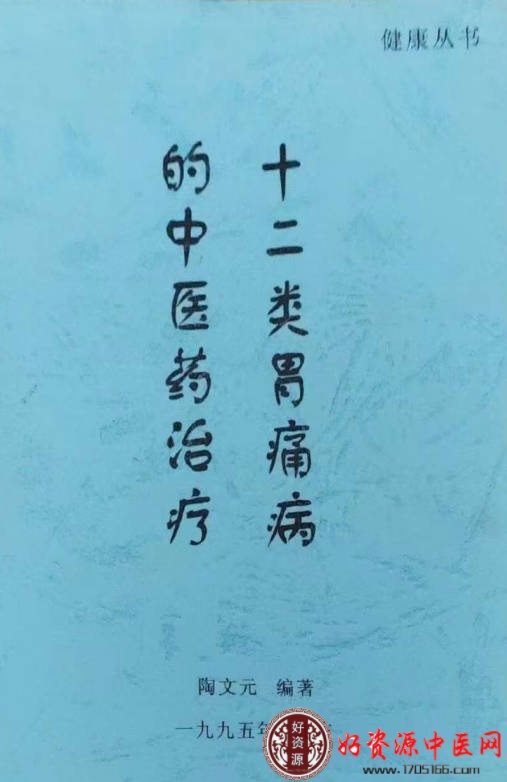 健康丛书
十二类胃痛病
的中医药治疗
陶文元 编著
一九九五年
好资源
好资源中医网
www.1705166.com